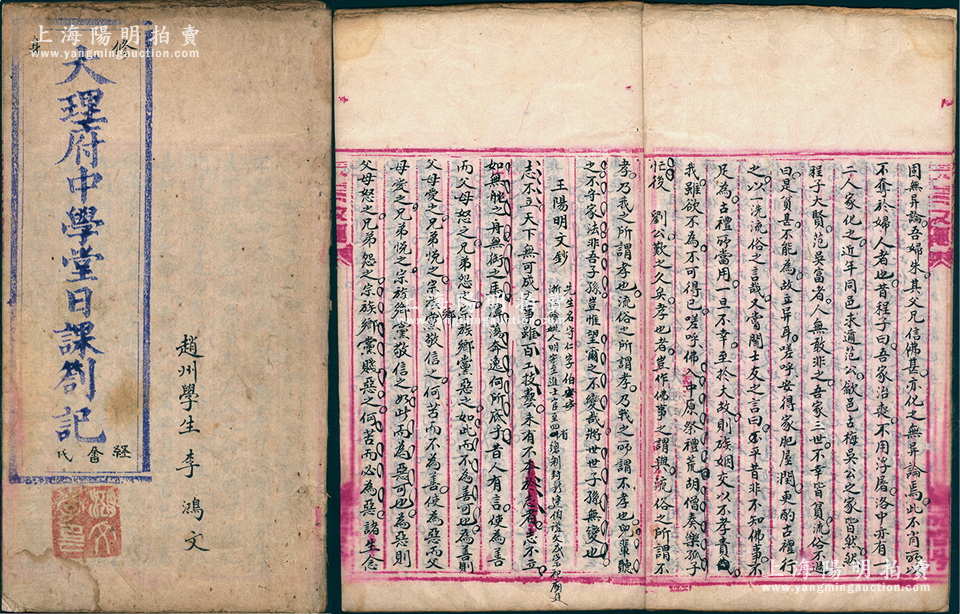 上海陽明拍賣
www.yangmingauction.com
修
身
大理府中學堂日課劄記
經
會
氏
趙州學生 李鴻文
上海陽明拍賣
www.yangmingauction.com
固無异論吾婦朱其父兄信佛甚亦化之無异論焉此不肖所以
不奪於婦人者也昔程子曰吾家治喪不用浮屠洛中亦有一
二人家化之近年同邑宋適范公歙邑古梅吳公之家皆然然
程子大賢范吳富者人無敢非之吾家三世不幸皆貧流俗不過
曰是貧甚不能為故立异耳嗟呼安得家肥屋閏更酌古禮行
之以一洗流俗之言哉又嘗聞士友之言曰本乎昔非不知佛事不
足為古禮所當用一旦不幸至於大故則族姻交以不孝責
我雖欲不為不可得已嗟呼佛入中原祭禮荒胡僧奏樂孤子
忙後 劉公歎之久矣孝也者豈作佛事之謂與流俗之所謂不
孝乃我之所謂孝也流俗之所謂孝乃我之所謂不孝也曲輩聽
之不守家法非吾子孫豈惟望爾之不變哉將世世子孫無變也
王陽明文鈔 先生名守仁字伯安
志不立天下無可成之事雖百工技藝未有不本於志者志不立
如無舵之舟無銜之馬漂蕩奔逸何所底乎昔人有言使為善
而父母怒之兄弟怨之宗族鄉黨賤惡之如此而不為善可也為善則
父母愛之兄弟悅之宗族鄉黨敬信之何苦而不為善使為惡而父
母愛之兄弟悅之宗族鄉黨敬信之如此而為惡可也為惡則
父母怒之兄弟怨之宗族鄉黨賤惡之何苦而必為惡諸生念
上海陽明拍賣
www.yangmingauction.com